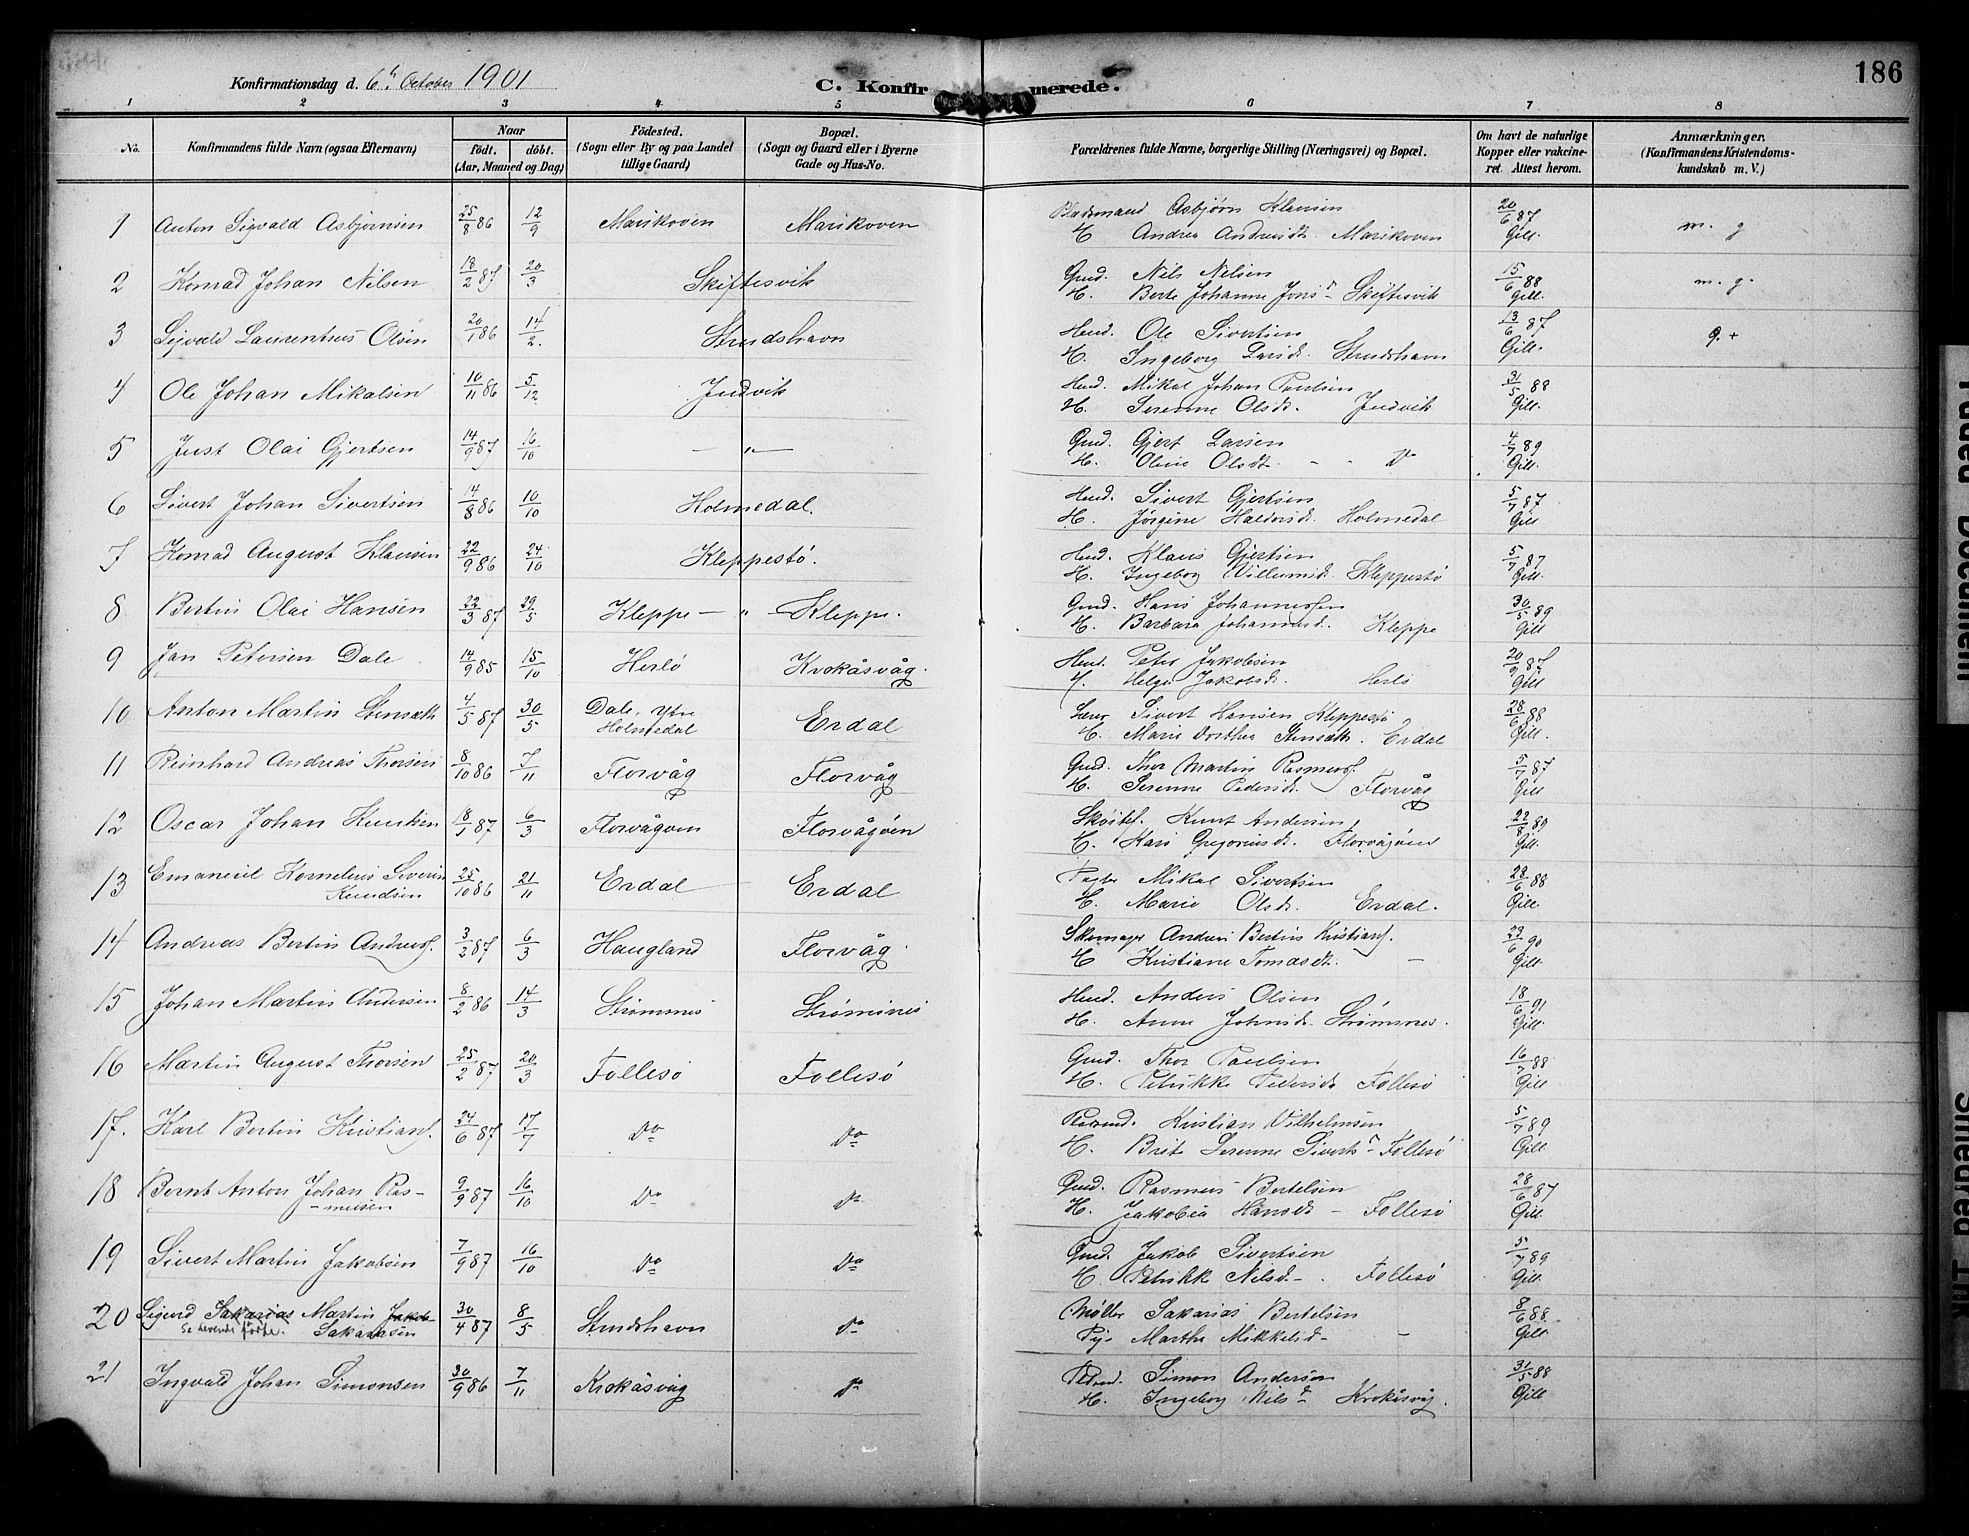 186
Konfirmationsdag d. 6te October 1901
C. Konfirmerede.
1 2 3 4 5 6 7 8
No. Konfirmandens fulde Navn (ogsaa Efternavn) Naar Födt. döbt. (Aar, Maaned og Dag) Födested. (Sogn eller By og paa Landet tillige Gaard) Bopæl. (Sogn og Gaard eller i Byerne Gade og Hus-No. Forældrenes fulde Navne, borgerlige Stilling (Næringsvei) og Bopæl. Om havt de naturlige Kopper eller vakcineret. Attest herom. Anmærkninger. (Konfirmandens Kristendomskundskab m. V.)
1 Anton Sigvald Asbjørnsen 25/8 86 12/9 Marikoven Marikoven Pladsmand Asbjørn Klausen 20/6 87 m. g
H. Andrea Andreasdt. Marikoven Gill.
2 Konrad Johan Nilsen 18/2 87 20/3 Skiftesvik Gmd. Nils Nilsen 15/6 88 m. g.
H. Berte Johanne Jonsd Skiftesvik Gill.
3 Sigvald Laurentius Olsen 20/1 86 14/2. Strudshavn Hmd. Ole Sivertsen 13/6 87 g. +
H. Ingeborg Larsd. Strudshavn Gill.
4 Ole Johan Mikalsen 10/11 86 5/12 Juvik Hmd. Mikal Johan Paulsen 31/5 88
H. Serenne Olsdt. Gill.
5 Just Olai Gjertsen 14/9 87 16/10 — " — Gmd. Gjert Larsen 4/7 89
H. Oline Olsdt. - - Do Gill.
6 Sivert Johan Sivertsen 14/8 86 10/10 Holmedal. Hmd. Sivert Gjertsen 5/7 87
H. Jørgine Haldorsd. Holmedal Gill
7 Konrad August Klausen 22/9 86 24/10 Kleppestö. Hmd. Klaus Gjertsen 5/7 87
H. Ingeborg Villumsd. Kleppestö Gill.
8 Bertin Olai Hansen 22/3 87 29/5 Kleppe — " — Kleppe. Gmd. Hans Johannessen 30/5 89
H. Barbara Johannesd. Kleppe Gill
9 Jan Petersen Dale 14/9 85 15/10 Herlö Krokåsvåg. Hmd. Peter Jakobsen 20/9 87
H. Helga Jakobsd. Herlö Gill
10 Anton Martin Stensæth 4/5 87 30/5 Dale, Ytre Holmedal Erdal Sivert Hansen Kleppestö 28/6 88
H. Marie Dorthea Stensæth. Erdal Gill.
11 Reinhard Andreas Thorsen 8/10 86 7/11 Florvåg Florvåg Gmd. Thor Martin Rasmuss. 5/7 87
H. Serenne Pedersdt. Florvåg Gill
12 Oscar Johan Knudsen 18/1 87 6/3 Florvågöen Florvågöen Knut Andersen, 22/8 89
H. Kari Gregoriusdt. Florvågöen Gill.
13 Emanuel Kornelius Severin Knudsen 25/10 86 21/11 Erdal Erdal Mikal Sivertsen 28/6 88
H. Marie Olsdt. Erdal. Gill.
14 Andreas Bertin Andreass. 3/2 87 6/3 Haugland Florvåg Skomager Andreas Bertin Kristians. 23/6 90
H. Kristiane Tomasdt. — Gill.
15 Johan Martin Andersen 8/2 86 14/3 Strømmes Strømsnes Hmd. Anders Olsen 18/6 91
H. Anne Johnsdt. Strømsnes. Gill.
16 Martin August Thorsen 25/2 87 20/3 Follesö Follesö Gmd. Thor Paulsen 16/7 88
H. Petrikke Pedersdt Follesö Gill
17. Karl Bertin Kristians. 24/6 87 17/7 Do Do Kristian Vilhelmsen 5/7 89
H. Brite Serenne Sivertsd Follesö Gill
18 Bernt Anton Johan Rasmussen 9/9 87 16/10 Do Do Gmd. Rasmus Bertelsen 28/6 87
H. Jakobia Hansdt - Follesö Gill
19 Sivert Martin Jakobsen 7/9 87 16/10 Do Do Gmd. Jakob Sivertsen 5/7 89
H. Petrikke Nilsdt - . Follesö Gill
20 Sigurd Sakarias Martin Jakob Sakariasen 30/4 87 8/5 Strudshavn Do Møller Sakarias Bertelsen 8/6 88
Pige Martha Mikkelsdt — Gill
21 Ingvald Johan Simonsen 30/9 86 7/11 Krokåsvåg Do Simon Andersen 31/5 88
H. Ingeborg Nilsd Krokåsvåg. Gill